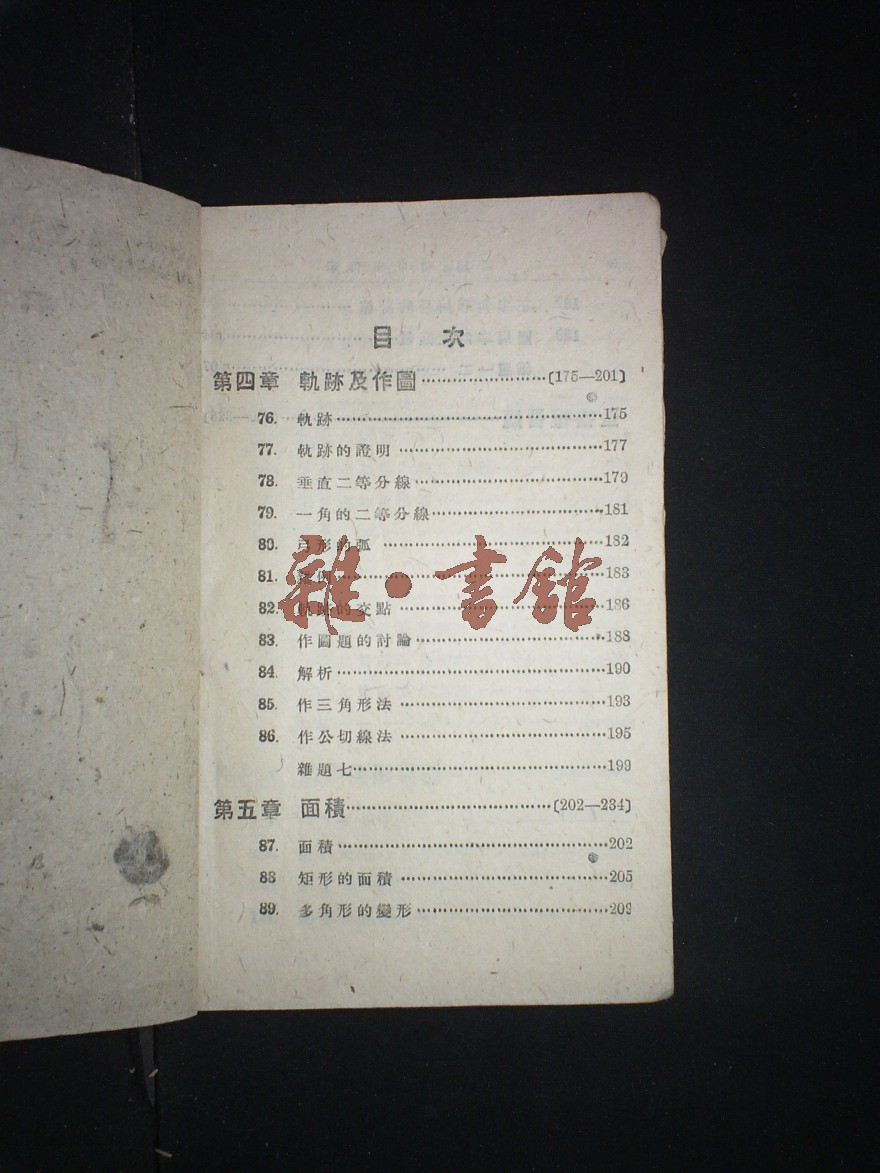 目 次
第四章 軌跡及作圖……………………〔175—201〕
76. 軌跡……………………175
77. 軌跡的證明……………………177
78. 垂直二等分線……………………179
79. 一角的二等分線……………………181
80. 弓形的弧……………………182
81. ……………………183
82. 軌跡的交點……………………186
雜·書館
83. 作圖題的討論……………………188
84. 解析……………………190
85. 作三角形法……………………193
86. 作公切線法……………………195
雜題七……………………199
第五章 面積……………………〔202—234〕
87. 面積……………………202
88 矩形的面積……………………205
89. 多角形的變形……………………209